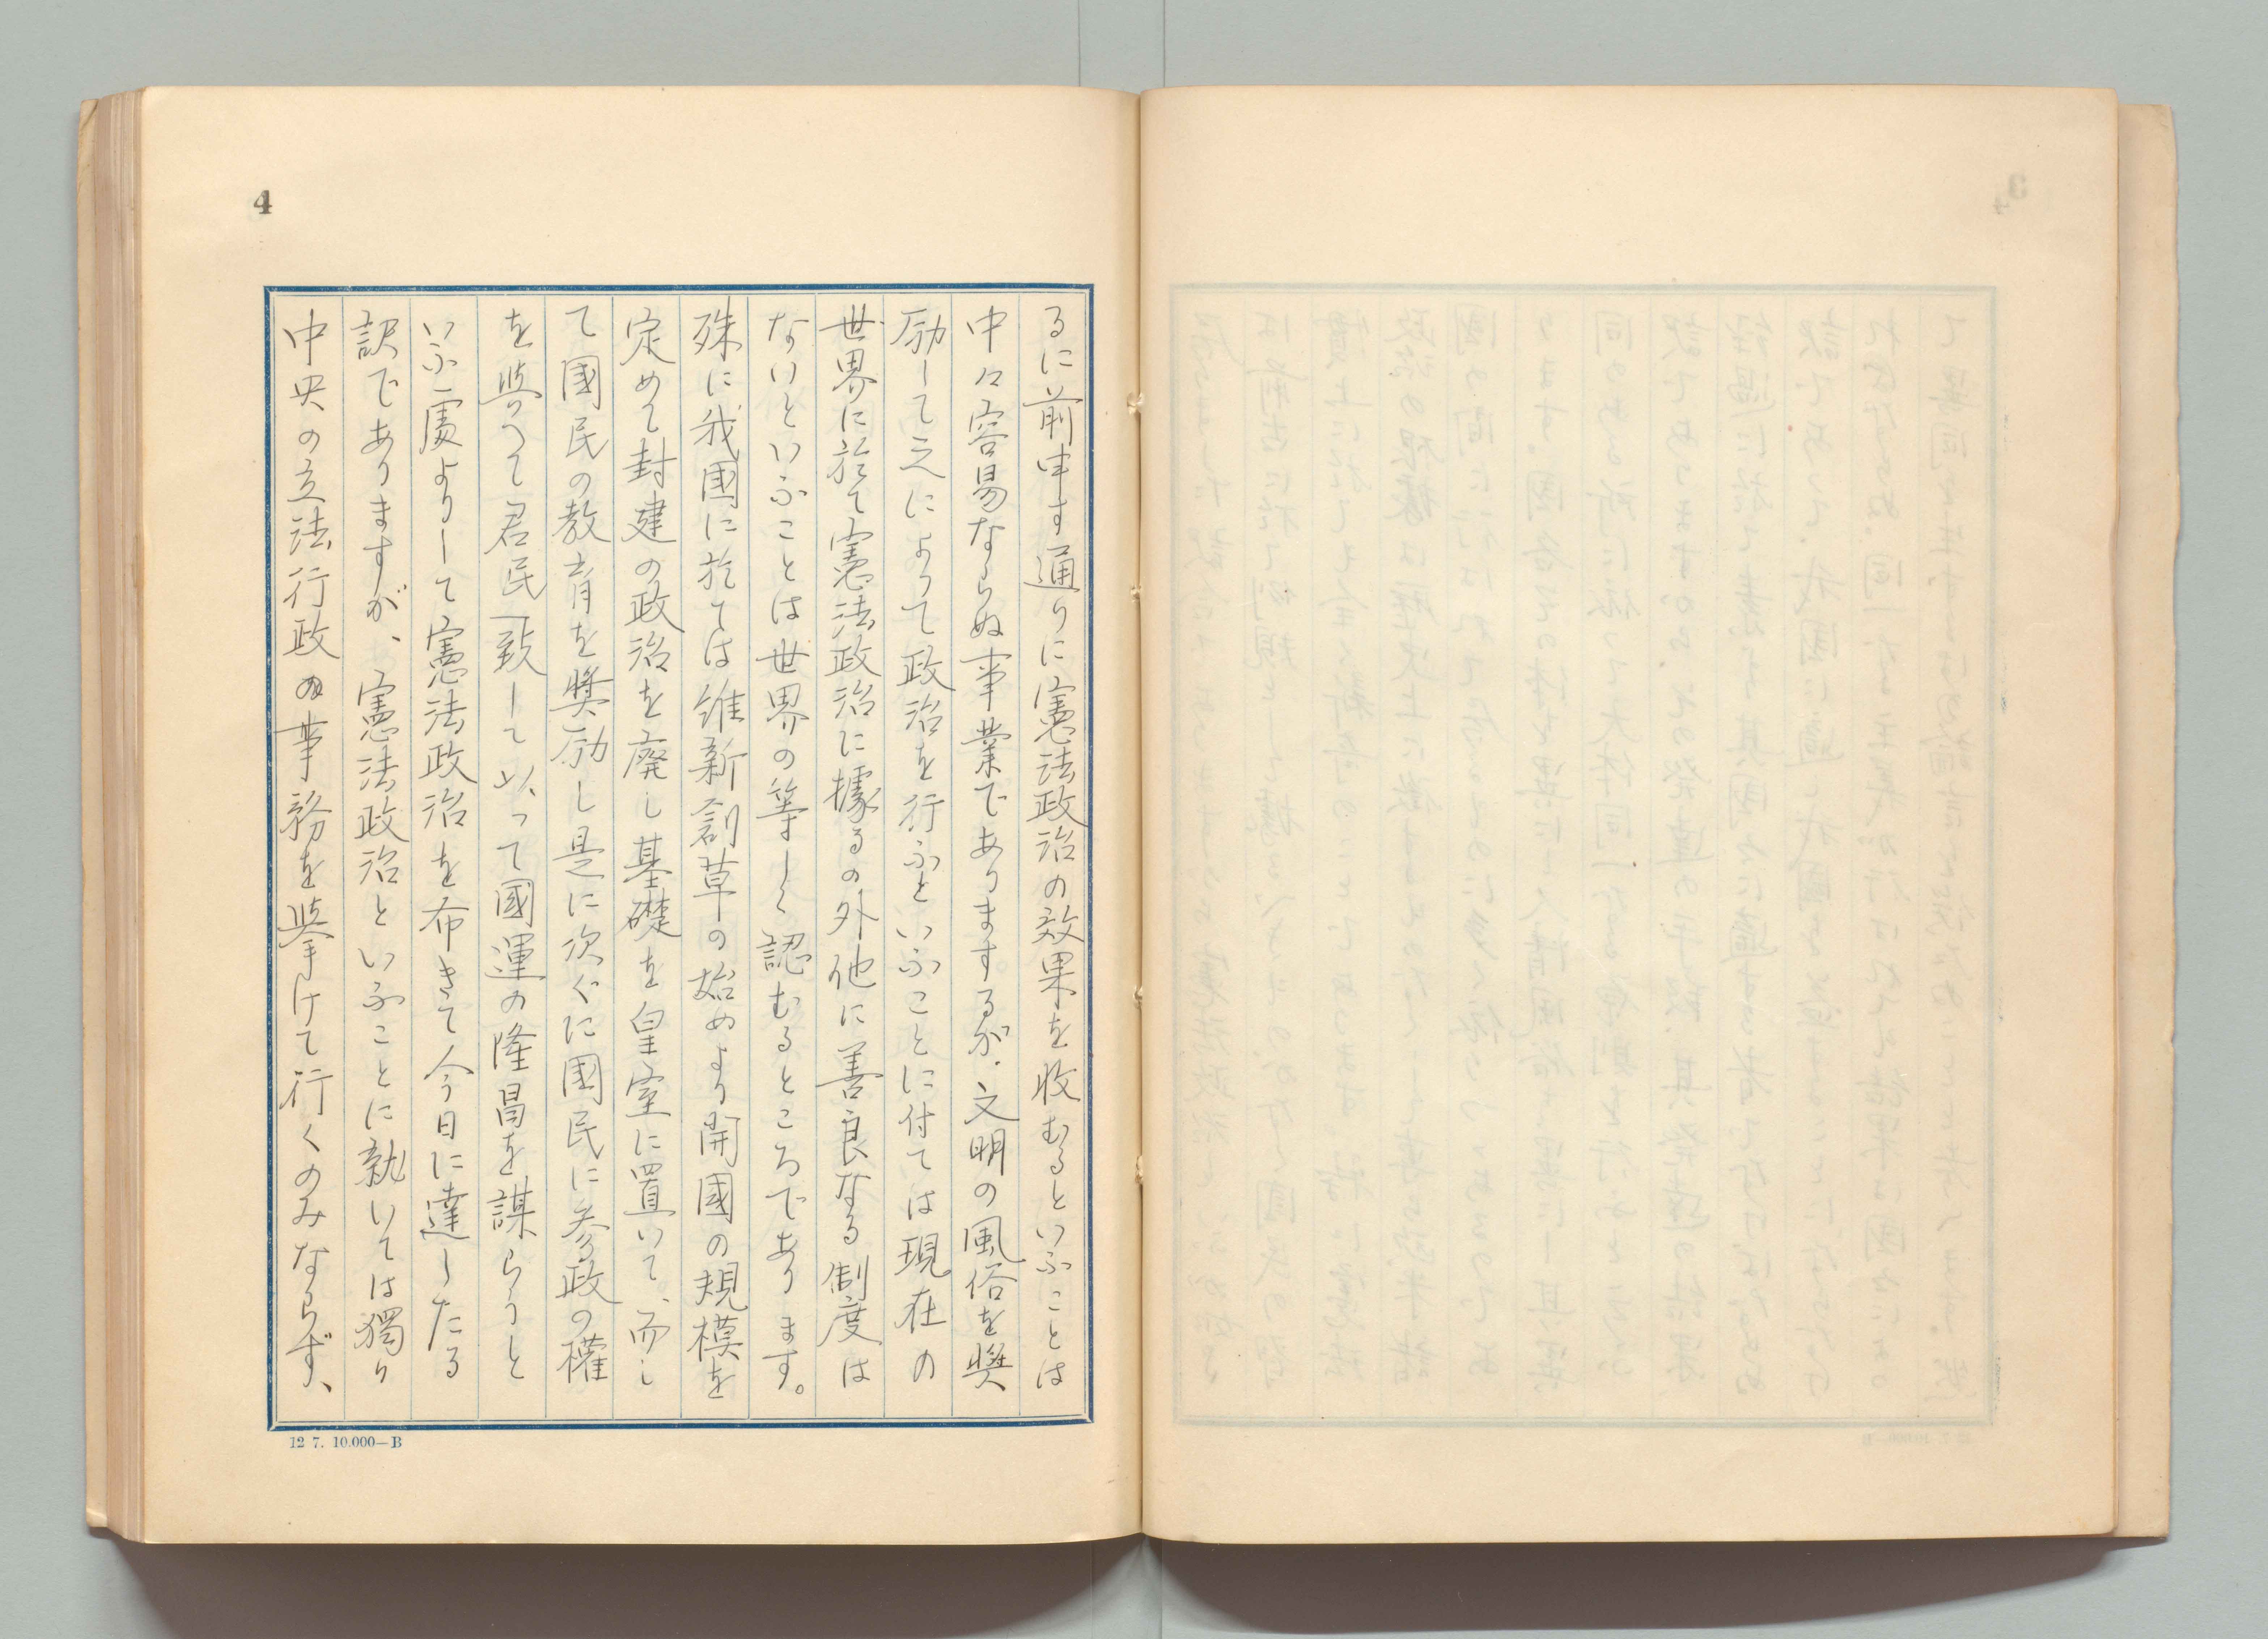 4
るに前申す通りに憲法政治の效果を收むるといふことは
中々容易ならぬ事業でありまするが、文明の風俗を奬
励して之によりて政治を行ふといふことに付ては現在の
世界に於て憲法政治に據るの外他に善良なる制度は
ないといふことは世界の等しく認むるところであります。
殊に我國に於ては維新創草の始めより開國の規模を
定めて封建の政治を廢し基礎を皇室に置いて、而し
て國民の教育を奬励し是に次ぐに國民に参政の權
を與へて君民一致して以って國運の隆昌を謀らうと
いふ處よりして憲法政治を布きて今日に達したる
訳でありますが、憲法政治といふことに就いては獨り
中央の立法行政の事務を擧げて行くのみならず、
12 7. 10.000—B